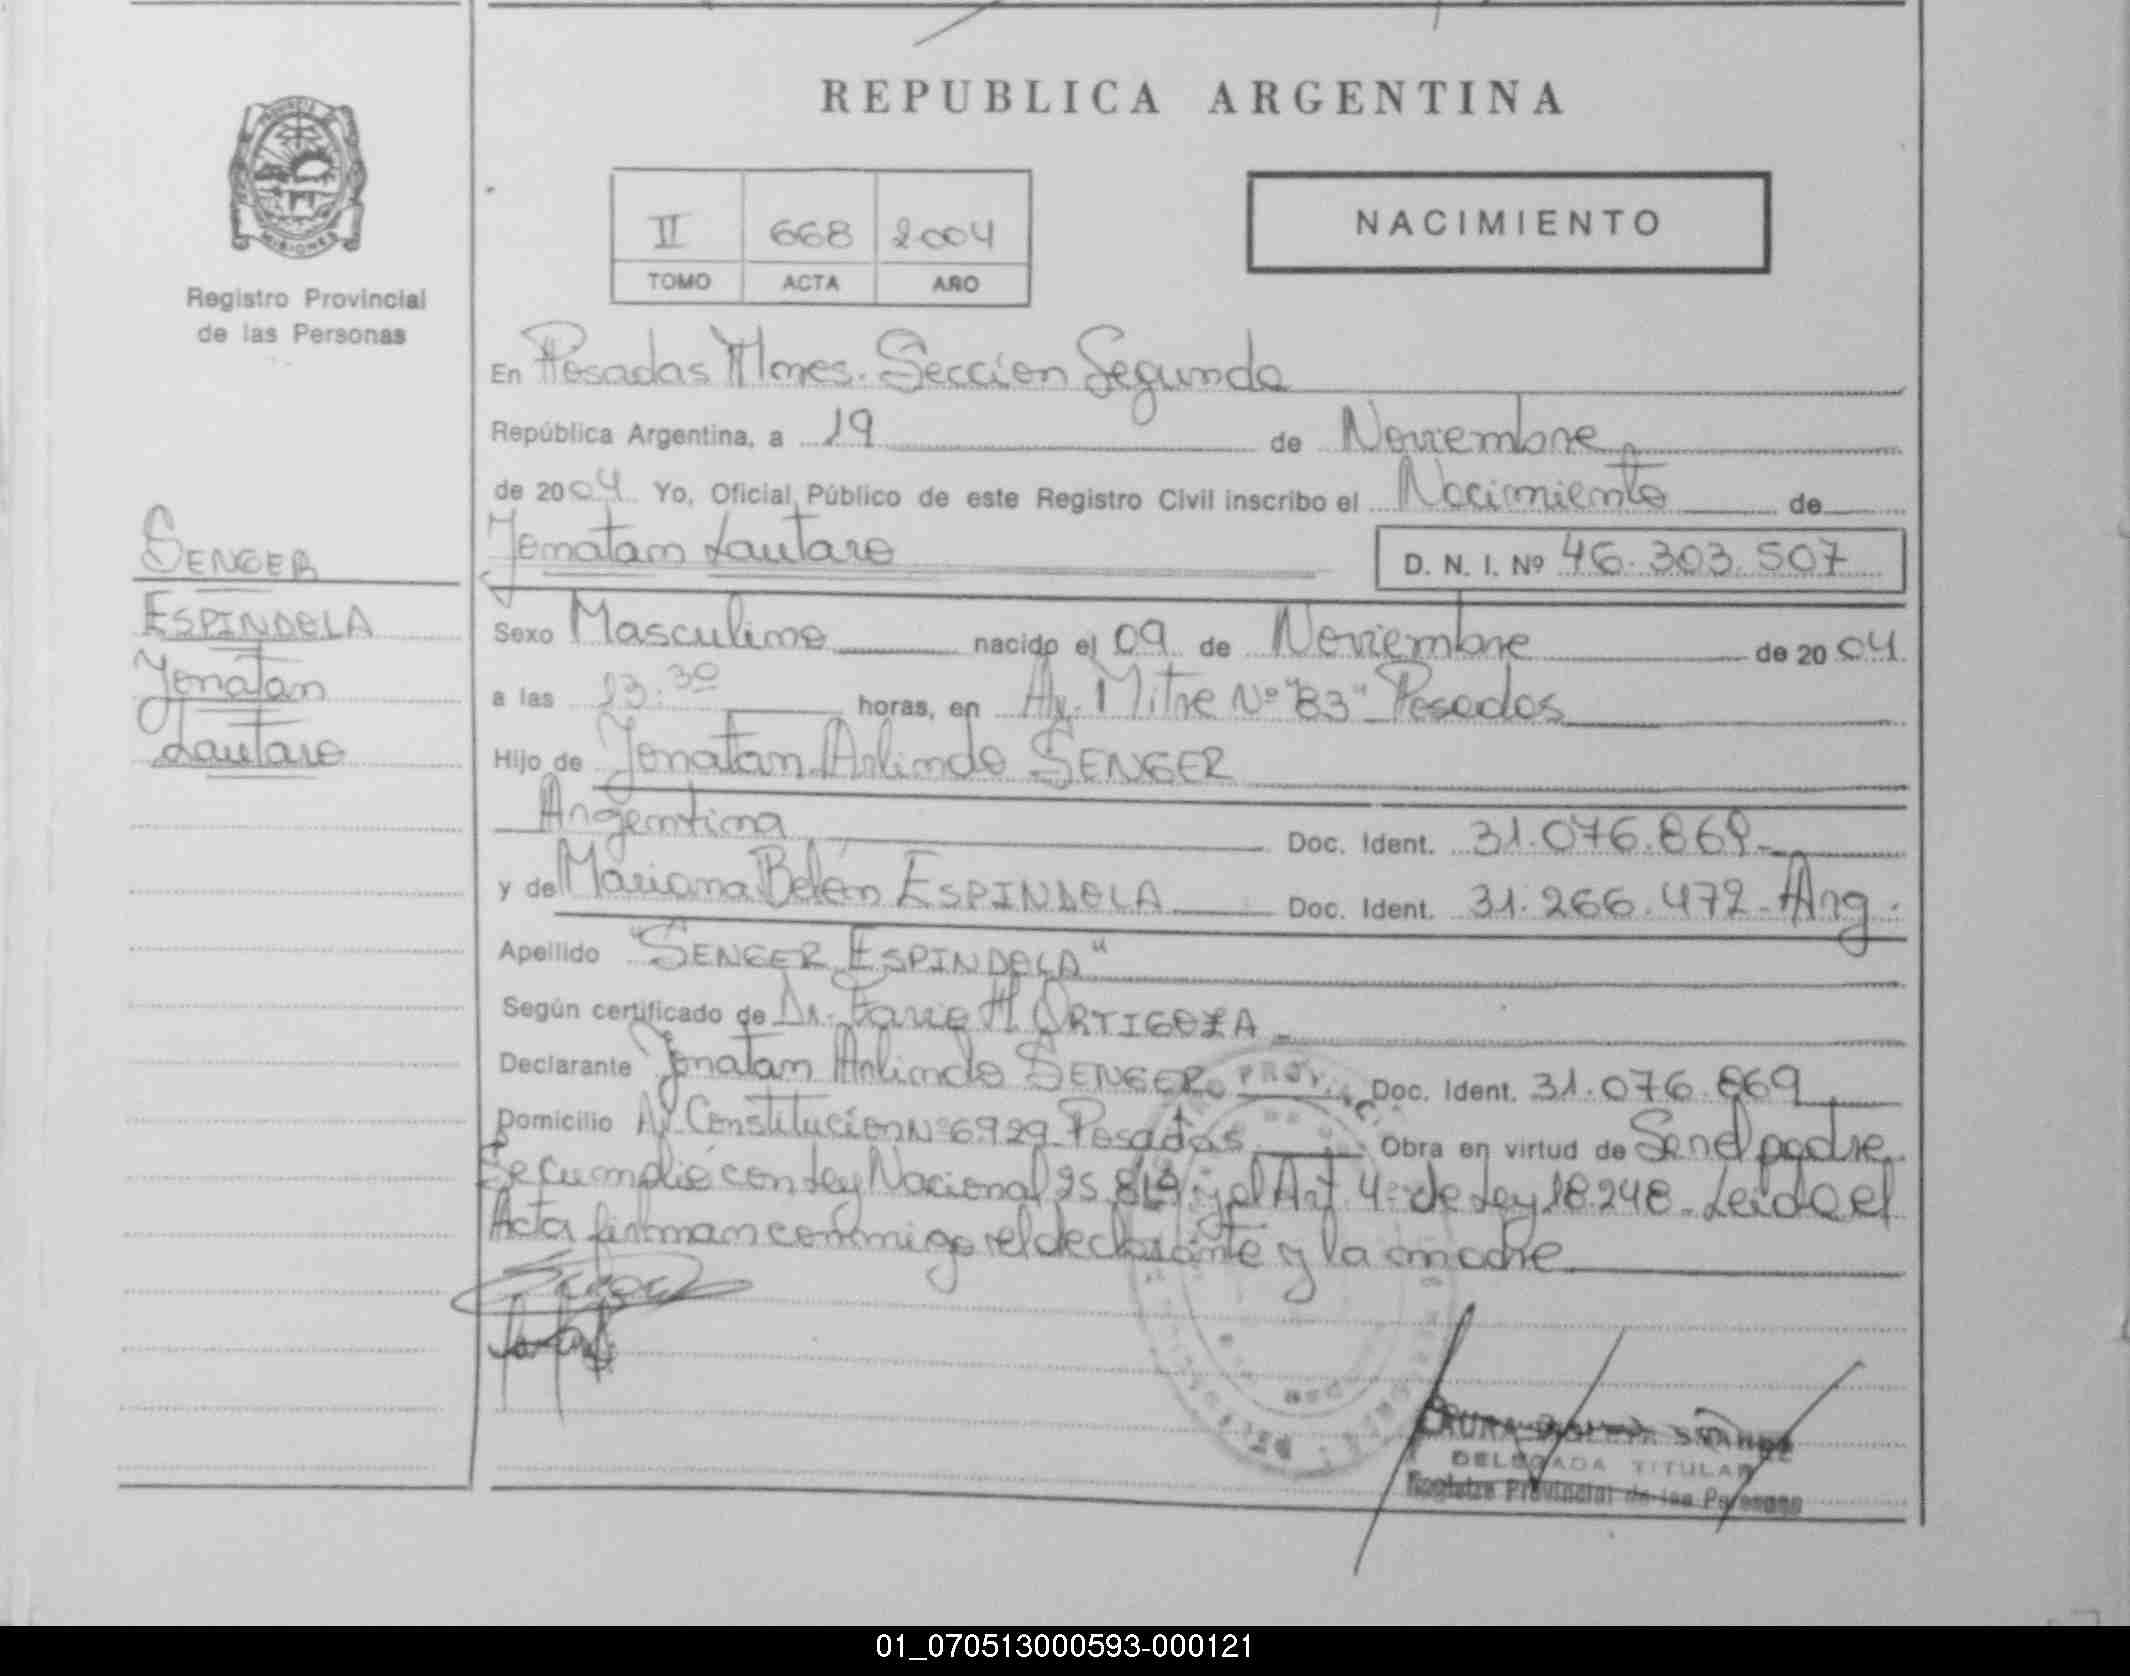 REPUBLICA ARGENTINA
PROVINCIA
MISIONES
Registro Provincial
de las Personas
II 668 2004
TOMO ACTA AÑO
NACIMIENTO
En Posadas Mnes. Sección Segunda
República Argentina, a 19 de Noviembre
de 2004 Yo, Oficial Público de este Registro Civil inscribo el Nacimiento de
Jonatan Lautaro
D. N. I. Nº 46.303.507
SENGER
ESPINDOLA
Jonatan
Lautaro
Sexo Masculino nacido el 09 de Noviembre de 2004
a las 13.30 horas, en Av. Mitre Nº "83" Posadas
Hijo de Jonatan Arlindo SENGER
Argentina Doc. Ident. 31.076.869
y de Mariana Belén ESPINDOLA Doc. Ident. 31.266.472 - Arg.
Apellido "SENGER ESPINDOLA"
Según certificado de Dr. H. ORTIGOZA
Declarante Jonatan Arlindo SENGER Doc. Ident. 31.076.869
Domicilio Av. Constitución Nº 6929 Posadas Obra en virtud de Ser el padre
Se cumplió con Ley Nacional y el Art. 4º de Ley 18.248 - Leída el
Acta firman conmigo el declarante y la madre
DELEGADA TITULAR
Registro Provincial de las Personas
01_070513000593-000121